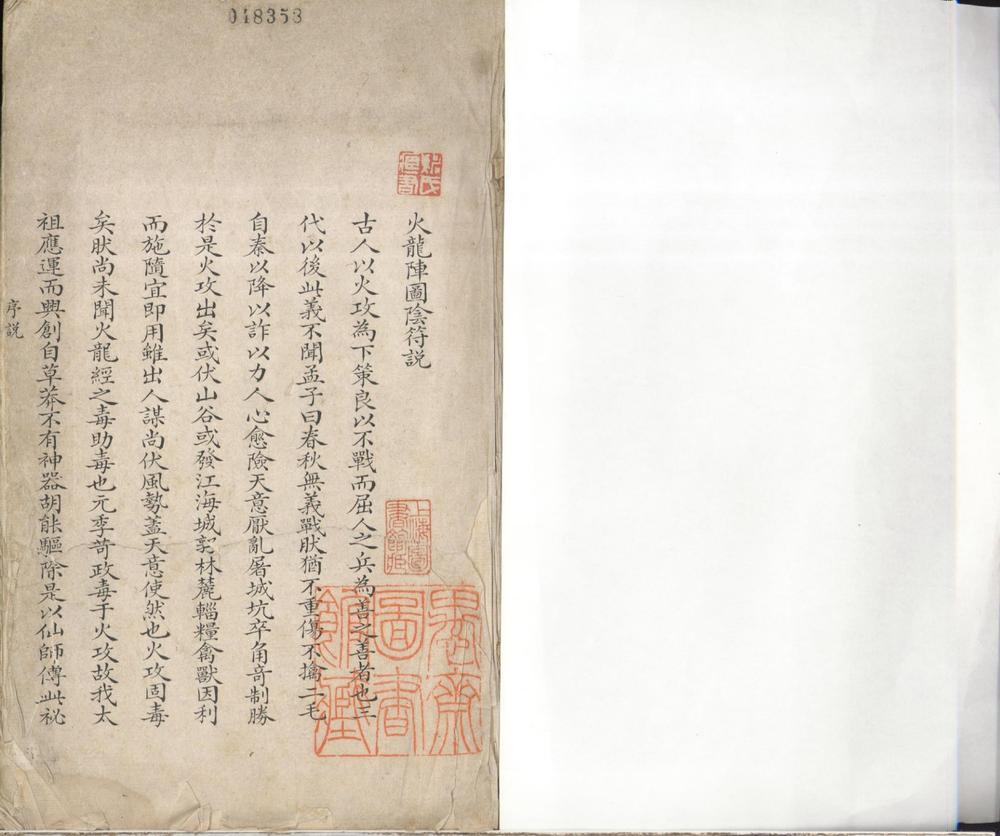 018353
火龍陣圖陰符説
古人以火攻為下策良以不戰而屈人之兵為善之善者也三
代以後此義不聞孟子曰春秋無義戰肰猶不重傷不擒二毛
自秦以降以詐以力人心愈險天意厭亂屠城坑卒角竒制勝
於是火攻出矣或伏山谷或發江海城郭林麓輜糧禽獸因利
而施隨宜即用雖出人謀尚伏風勢蓋天意使然也火攻固毒
矣肰尚未聞火龍經之毒助毒也元季苛政毒于火攻故我太
祖應運而興創自草莽不有神器胡能驅除是以仙師傳此祕
序説
上海圖書館藏